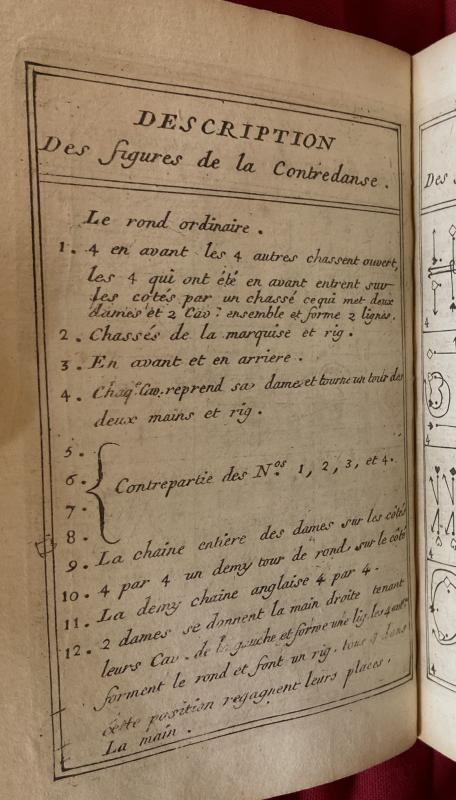 DESCRIPTION
Des figures de la Contredanse.
Le rond ordinaire.
1. 4 en avant les 4 autres chassent ouvert,
les 4 qui ont été en avant entrent sur
les côtés par un chassé ce qui met deux
dames et 2 Cav: ensemble et forme 2 lignes.
2. Chassés de la marquise et rig.
3. En avant et en arriere.
4. Chaq.e Cav. reprend sa dame et tourne un tour des
deux mains et rig.
5.
6.
7.
8.
Contrepartie des N.os 1, 2, 3, et 4.
9. La chaine entiere des dames sur les côtés
10. 4 par 4 un demy tour de rond, sur le côté
11. La demy chaine anglaise 4 par 4.
12. 2 dames se donnent la main droite tenant
leurs Cav. de la gauche et forme une lig. les 4 autr.
forment le rond et font un rig. tous 8 dans
cette position regagnent leurs places.
La main.
Des
4
4
4